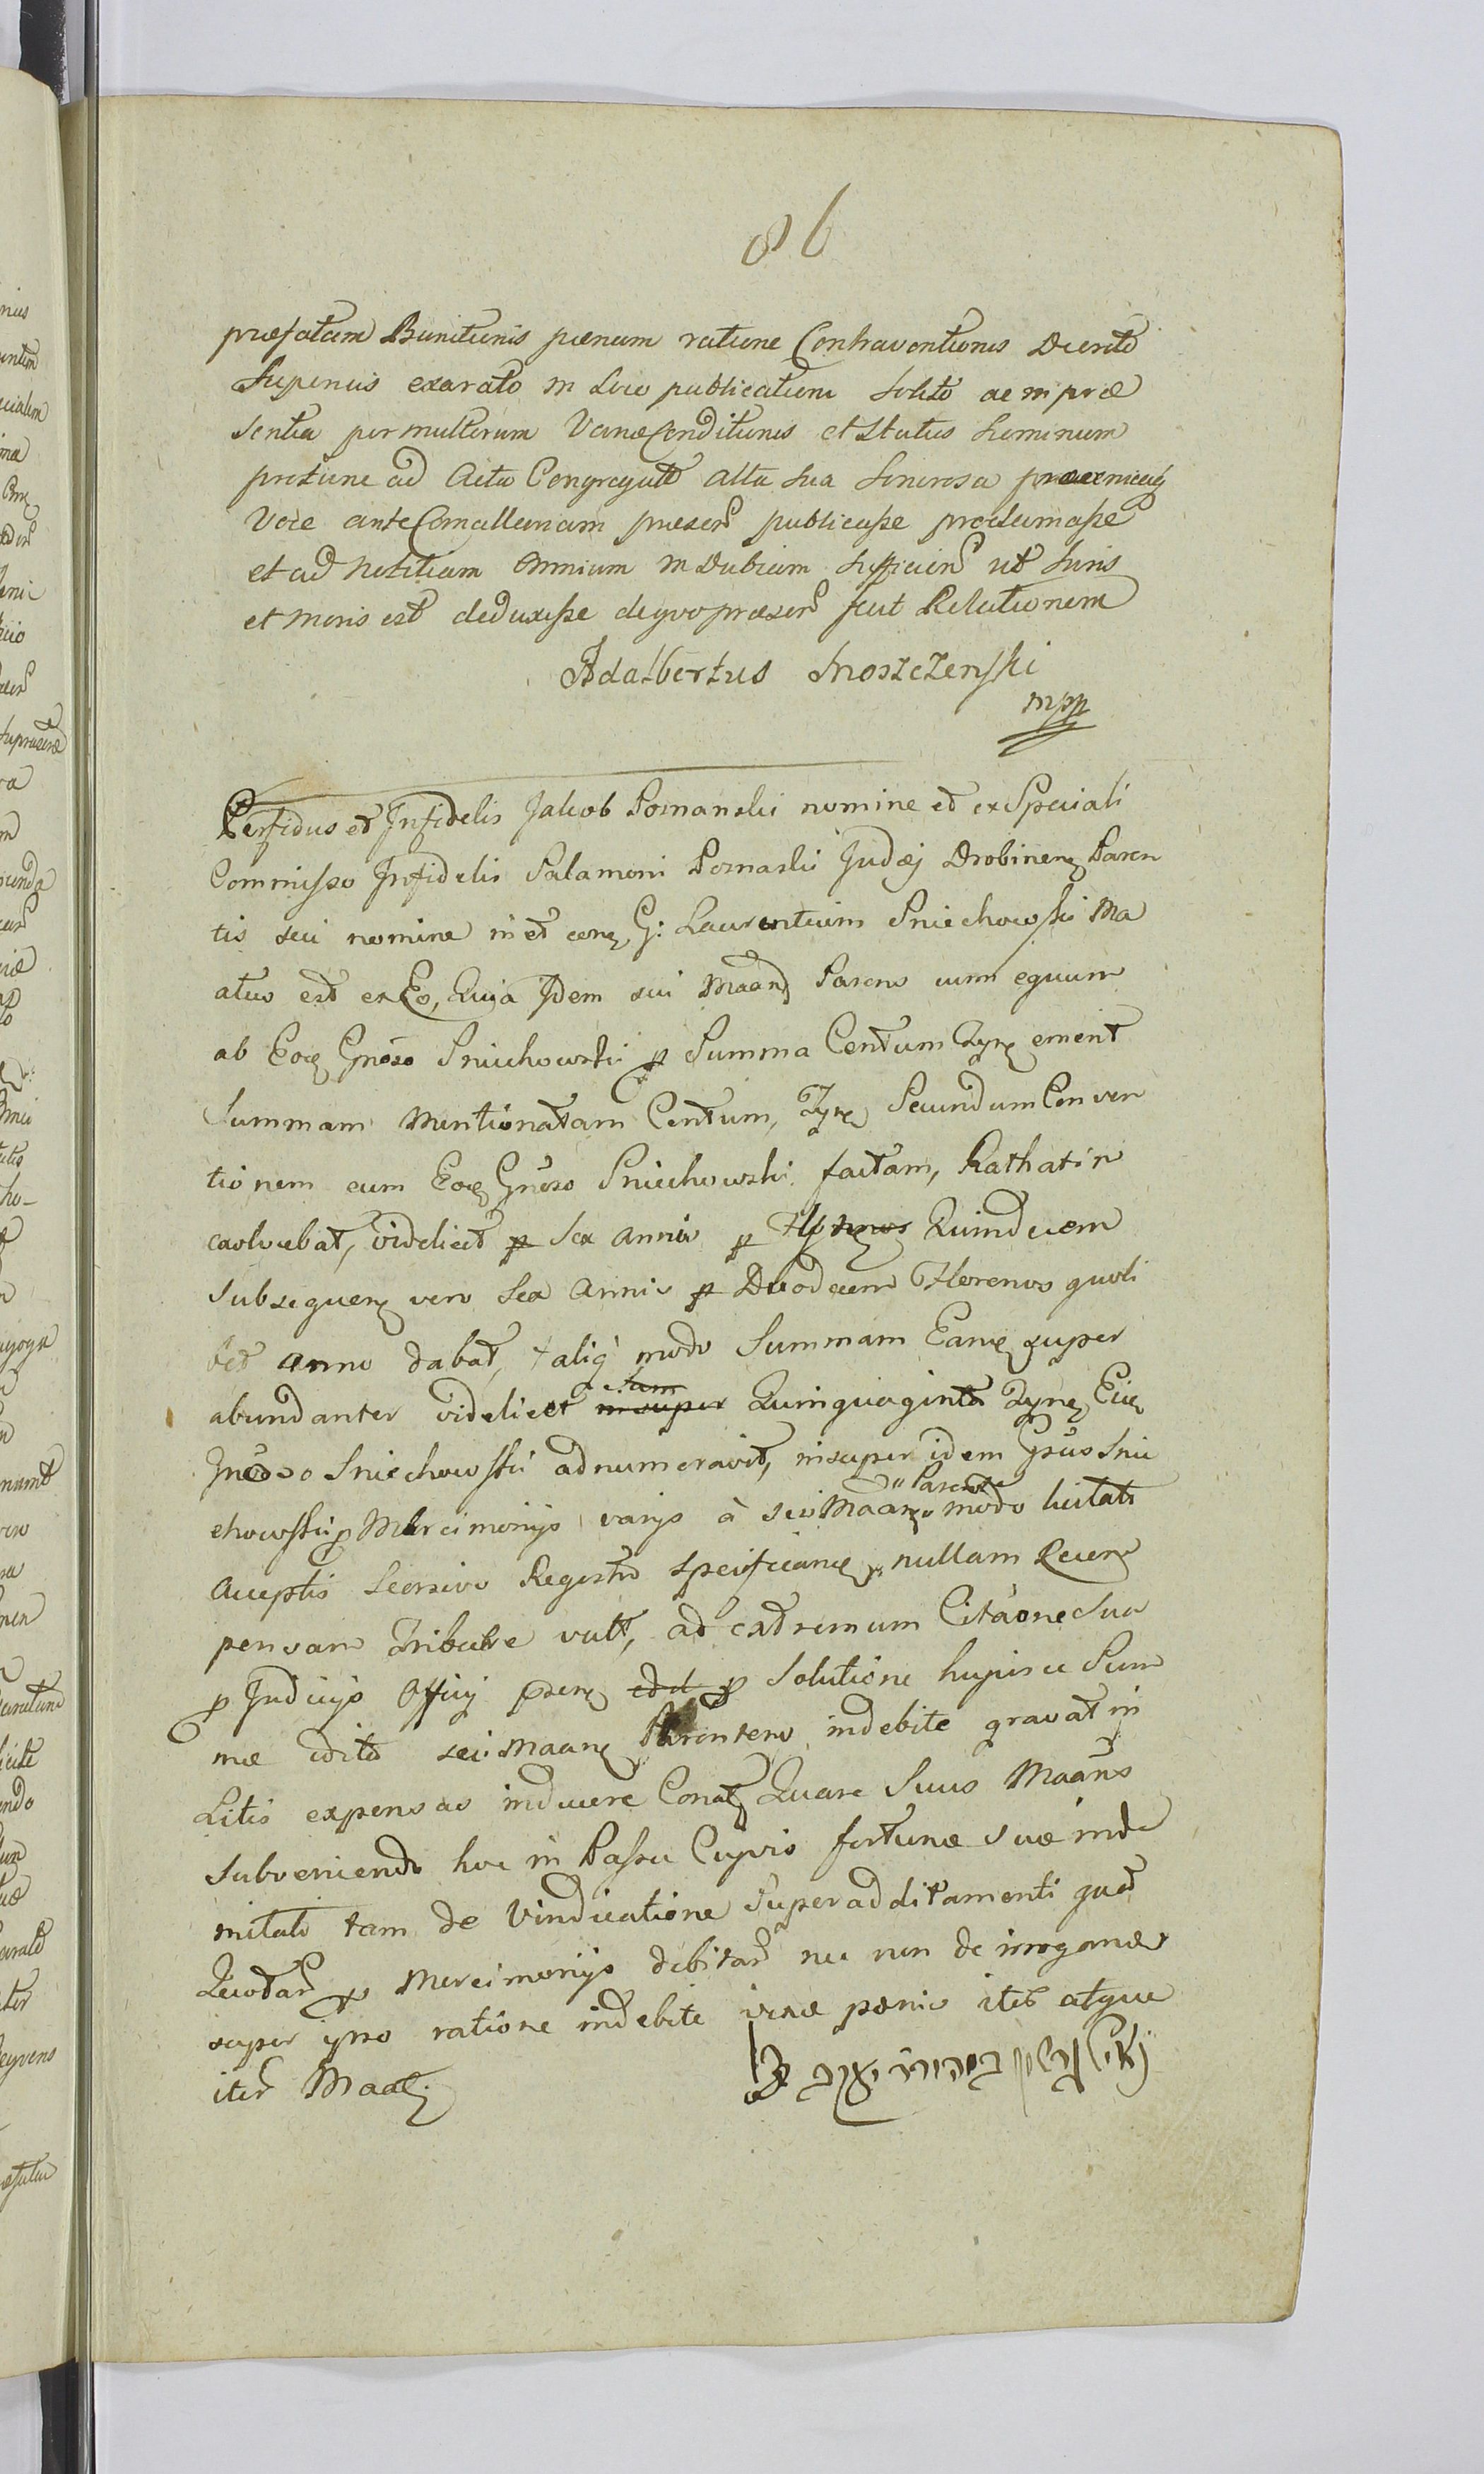 86
præfatam Banitionis pænam ratione Contraventionis Decreto
Superius exarato in Loco publicationi solito ac in præ
sentia permultorum Variæ Conditionis et Status hominum
protunc ad Acta Congregato alta sua Sonorosa
Voce ante Cancellariam præsen publicasse proclamasse
et ad Notitiam Omnium in Dubiam sufficien ut Juris
et Moris est deduxisse de quo præsen fecit Relationem
Adalbertus Moszczenski
mpp
Perfidus et Infidelis Jakob Poznanski nomine et ex Speciali
Commisso Infidelis Salamoni Poznaski Judæj Drobinen Paren
tis sui nomine in et con G: Laurentium Sniechowski Ma
atus est ex Eo, Quia Idem sui Maand Parens cum equum
ab Eoe Gnoso Sniechowski p Summa Centum Tyn emerit
Summam Mentionatam Centum, Tyn Secundum Conven
tionem cum Eoe Gnoso Sniechowski factam, Rathatin
exolvebat, videlicet p Sex annis p Quindecem
subsequen vero Sex Annis p Duodecem Florenos quoli
bet anno dabat, taliq modo Summam Eande super
abundanter videlicet insuper Quinquaginta Tyn Eide
Gnoso Sniechowski adnumeravit, insuper idem Gnsus Snie
chowski p Mercimonijs varijs à sui Maand Parente modo licitati
acceptis Seorsivo Registro specificand nullam Recom
pensam Tribuere vult, ad extremum Citaone Sua
p Judicijs Officij psen edit p Solutione hujusce Sum
mæ edito sui Maand Parentem indebite gravat in
Litis expensas inducere Conat Quare Suus Maans
subveniendo hoc in Passu Cujvis fortunæ suæ inde
mitati tam de Vindicatione Superadditamenti quod
p Mercimonijs debitar nec non de irrogand
super ipso ratione indebite vexæ pænis iter atque
iter Maat.